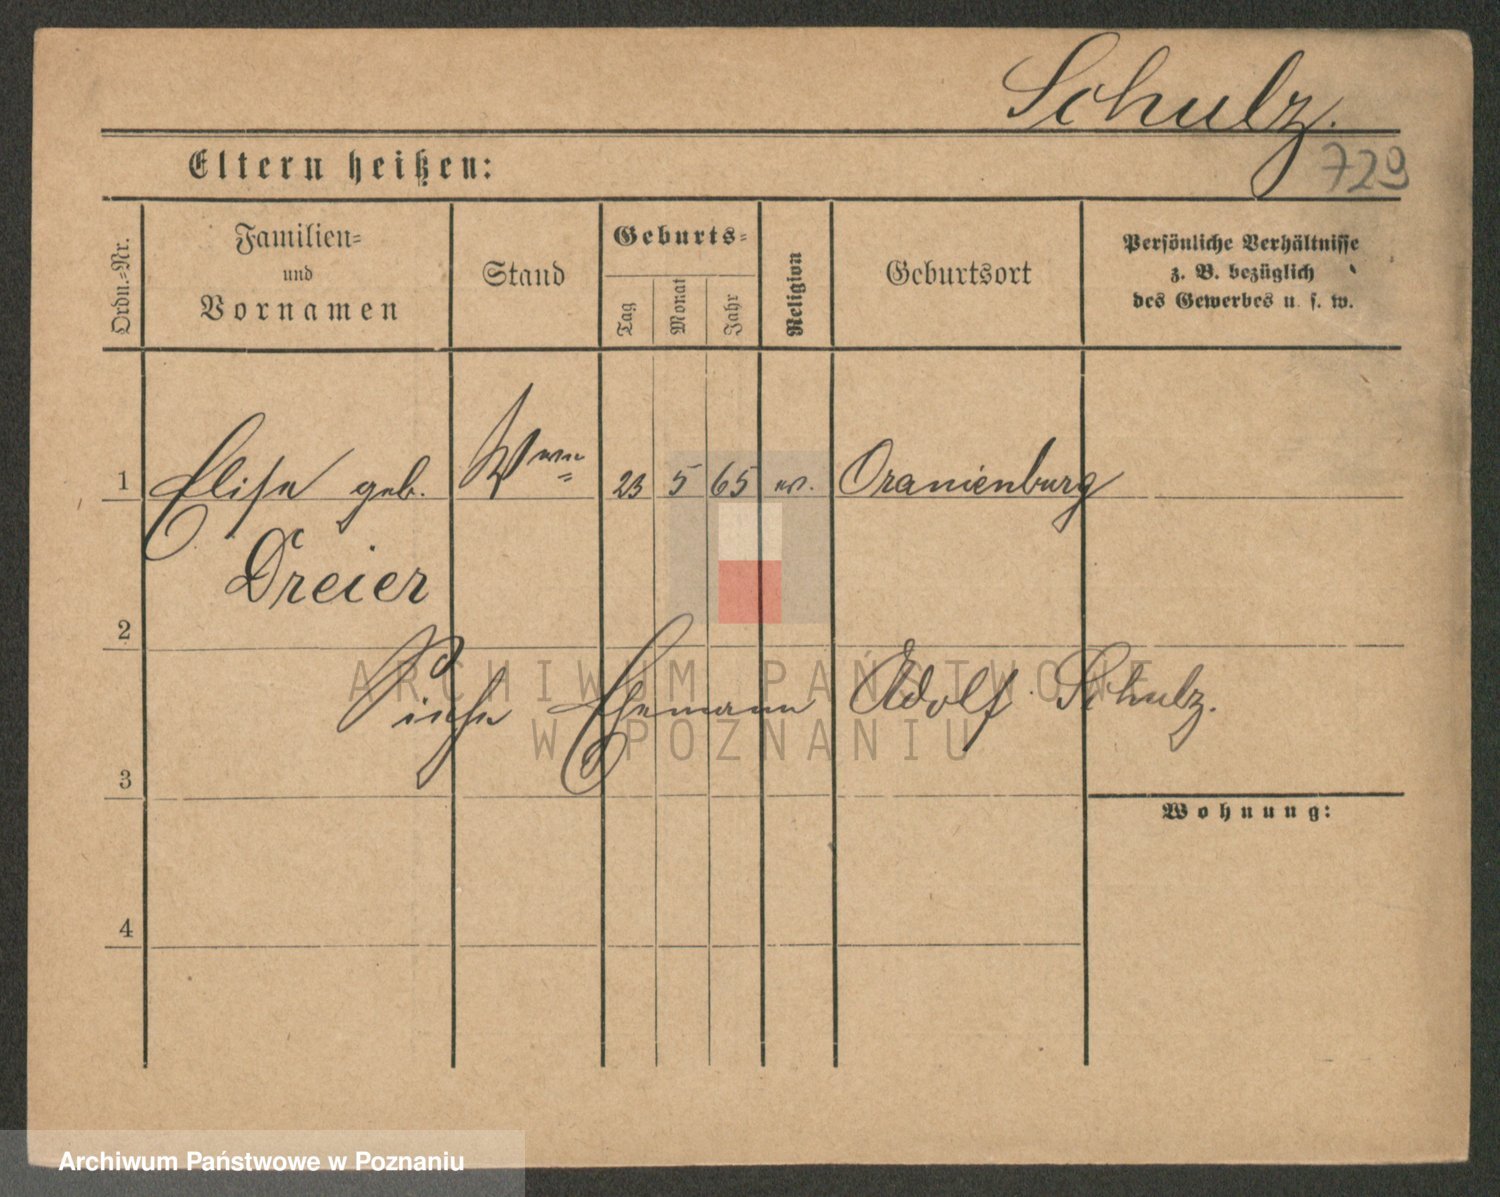 Schulz.
729
Eltern heißen:
Ordn.-Nr.
Familien-
und
Vornamen
Stand
Geburts-
Tag
Monat
Jahr
Religion
Geburtsort
Persönliche Verhältnisse
z. B. bezüglich
des Gewerbes u. s. w.
1 Elise geb. Wwe 23 5 65 ev. Oranienburg
Dreier
2
Siehe Ehemann Adolf Schulz.
ARCHIWUM PAŃSTWOWE
W POZNANIU
3
Wohnung:
4
Archiwum Państwowe w Poznaniu